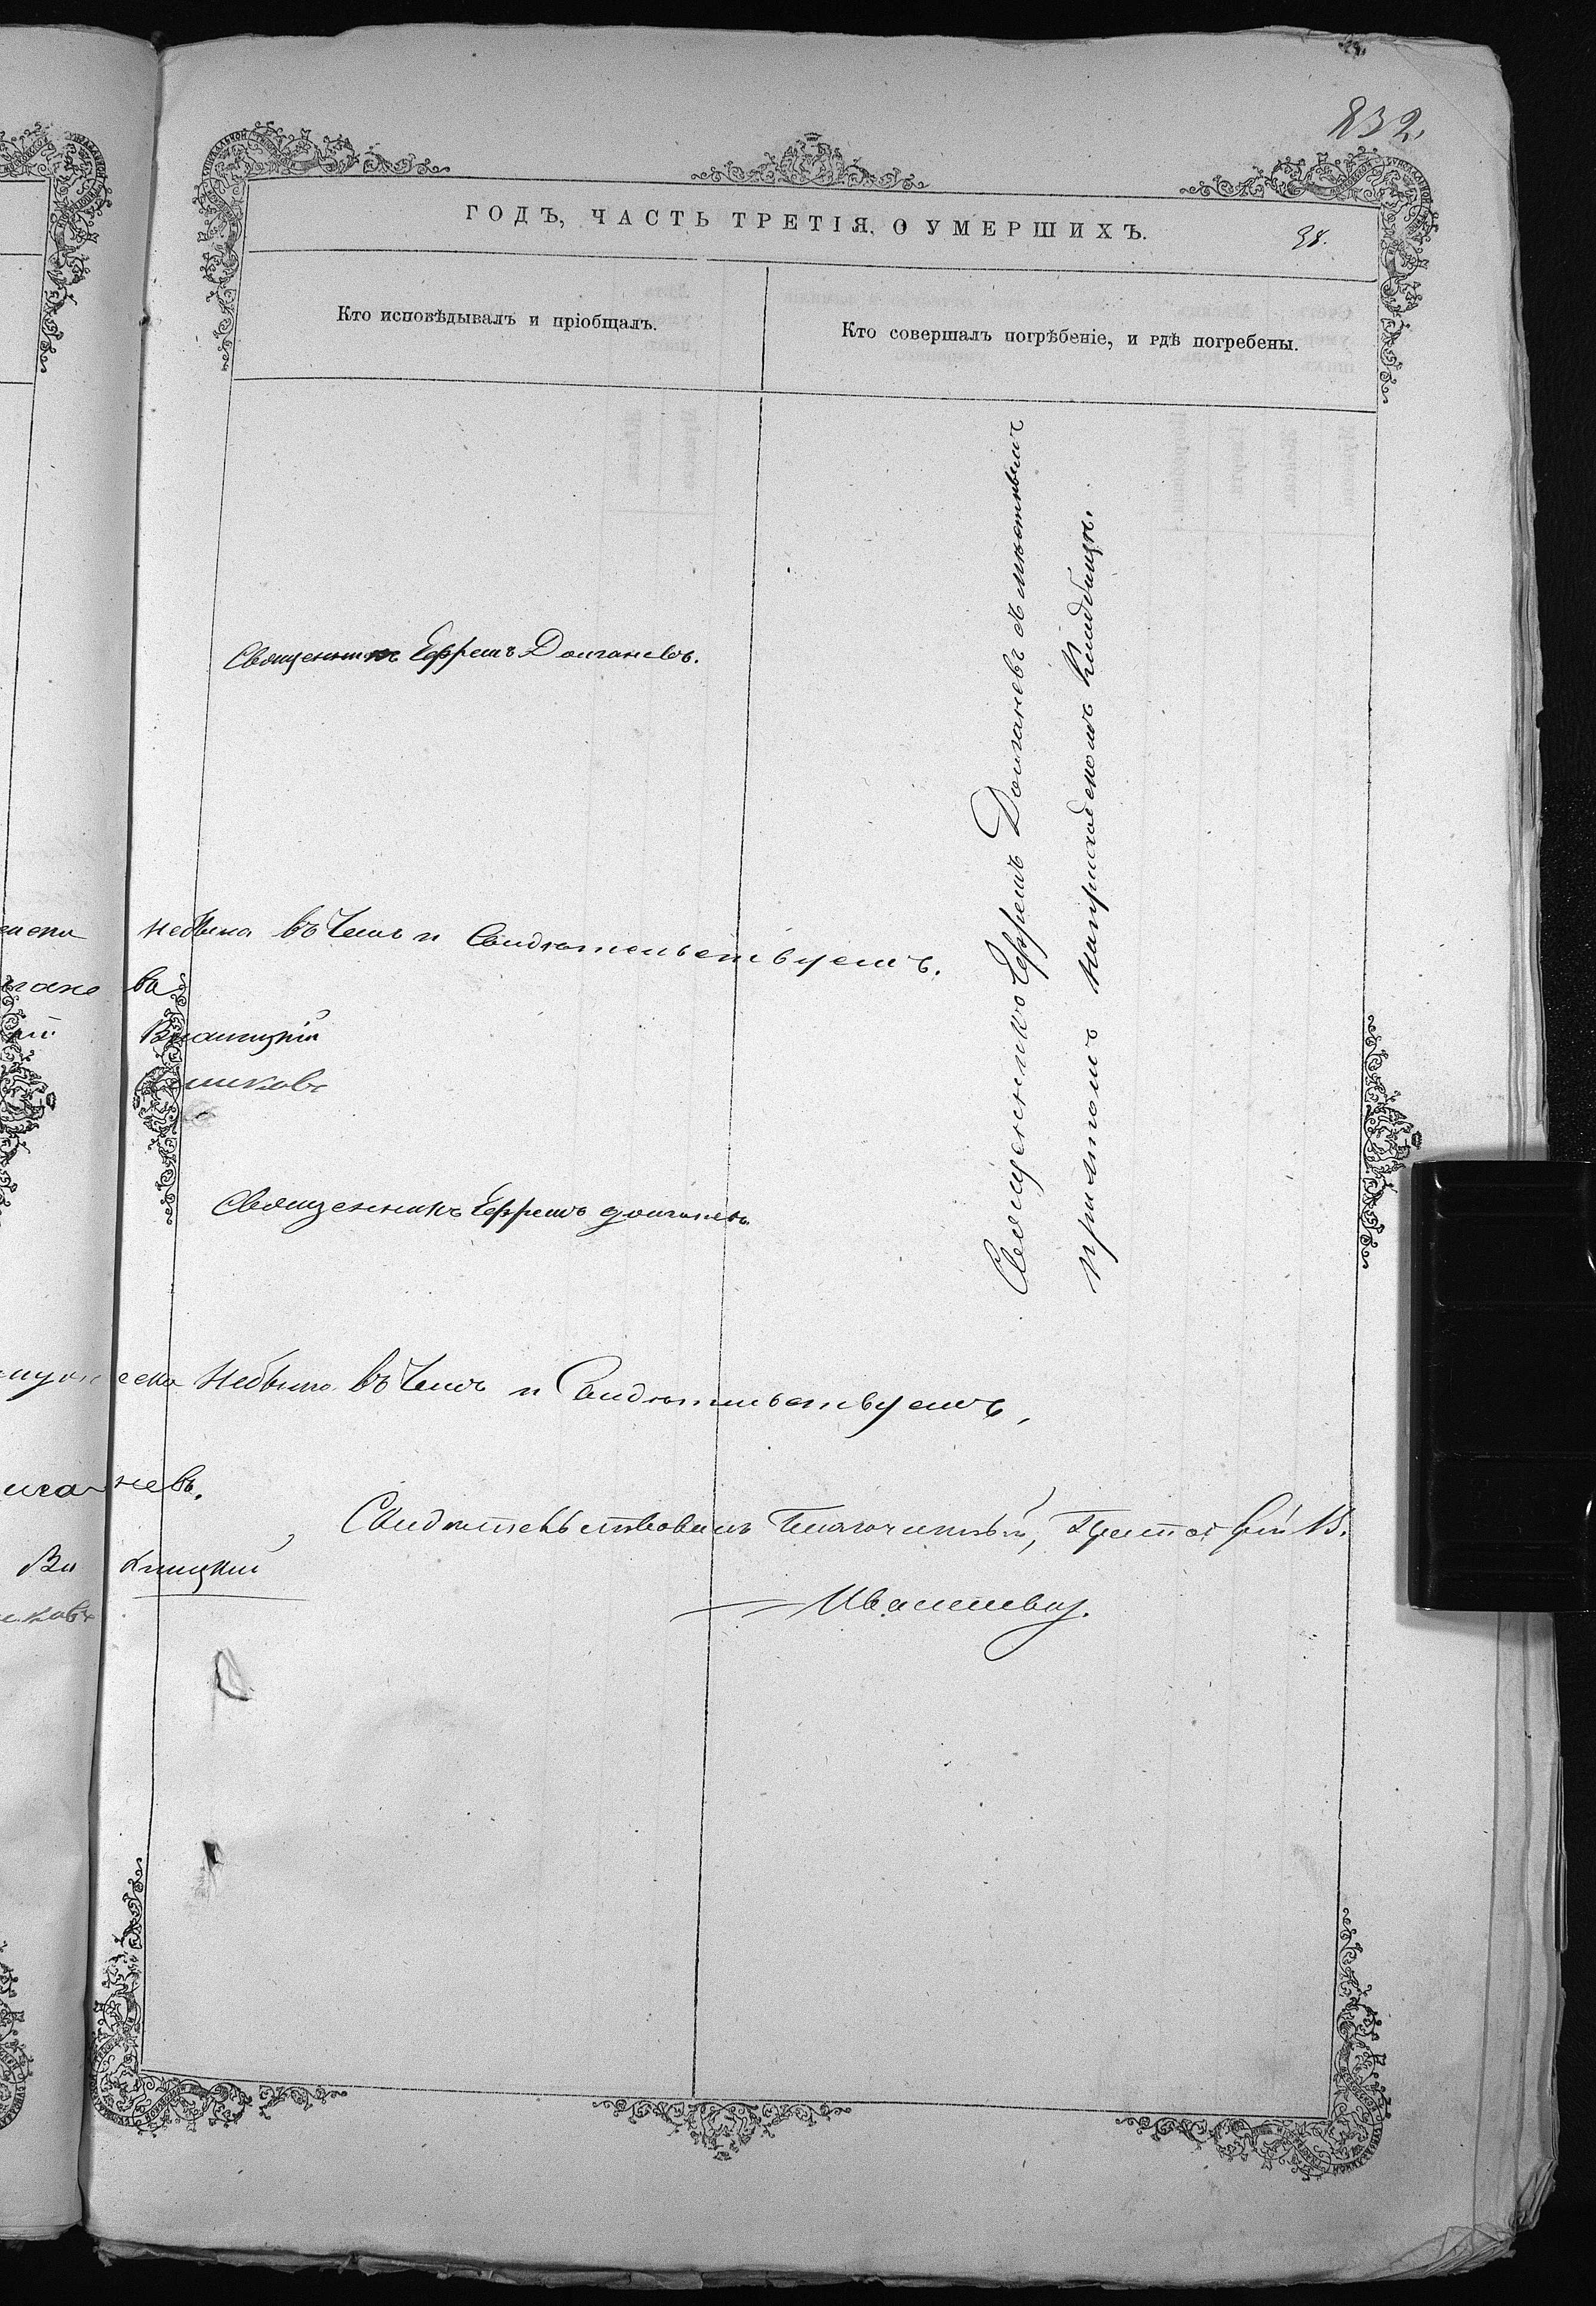 832.
ГОДЪ, ЧАСТЬ ТРЕТІЯ, О УМЕРШИХЪ.
38.
Кто исповѣдывалъ и пріобщалъ.
Кто совершалъ погрѣбеніе, и гдѣ погребены.
Священникъ Ефремъ Долганевъ.
Священникъ Ефремъ Долганевъ съ мѣстнымъ
причтомъ на приходскомъ кладбищѣ.
небыло въ чемъ и Свидѣтельствуемъ.
ва
шковъ
Священникъ Ефремъ Долганевъ
небыло въ чемъ и Свидѣтельствуемъ,
невъ.
Свидѣтельствовалъ Благочинный, Протоіерей В.
Иваншевъ.